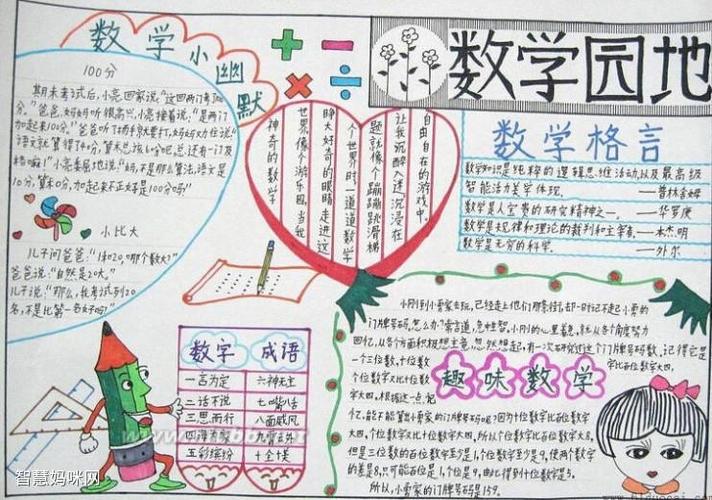 数学小幽默
100分
期末考试后,小亮回家说:"这回两门考100
分。"爸爸、妈妈听很高兴,小亮接着说:"是两门
加起来100分。"爸爸听了扬手就要打,妈妈劝住说"
语文就算得了40分,算术总该60分吧,总还有一门及
格嘛!"小亮委屈地说:"妈,不是那么算法,语文是
10分,算术0分,加起来不正好是100分吗"
小比大
儿子问爸爸:"1和20,哪个数大?"
爸爸说:"自然是20大。"
儿子说:"那么,我考试列20
名,不是比第一名好吗?
神奇的数学
世界像个游乐园.当我
睁大好奇的眼睛走进这
个世界时.一道道数学
题就像个蹦蹦跳滑梯
让我沉醉入迷沉浸在
自由自在的游戏中.
数学园地
数学格言
数学知识是纯粹的逻辑思维活动,以及最高级
智能活力美学体现. ——普林舍姆
数学是人宝贵的研究精神之一. ——华罗庚
数学是规律和理论的裁判和主宰者.——本杰明
数学是无穷的科学. ——外尔
数字 成语
一言为定 六神无主
二话不说 七嘴八舌
三思而行 八面威风
四海为家 九霄云外
五彩缤纷 十全十美
趣味数学
小刚到小卖家去玩,已经走上他们那条街
门牌号码.怎么办?常言道,急中生智.小刚的心里着急,就从各个角度努力
回忆,从各个方面积极想主意,忽然想起,有一次研究过这个门牌号码数,记得它是
一个三位数,十位数
字比百位数
个位数字又比十位数
字大四,根据这一点,记
忆,能不能算出小卖家的门牌号码呢?因为十位数字比百位数字
大四,个位数字又比十位数字大四,所以个位数字比百位数字大8,
但是三位数的百位数字至少是1,个位数字至多是9,使两个数字
的差是8,只可能百位是1,个位是9,由此得到十位数字是5.
所以,小卖家的门牌号码是159.
智慧妈咪网